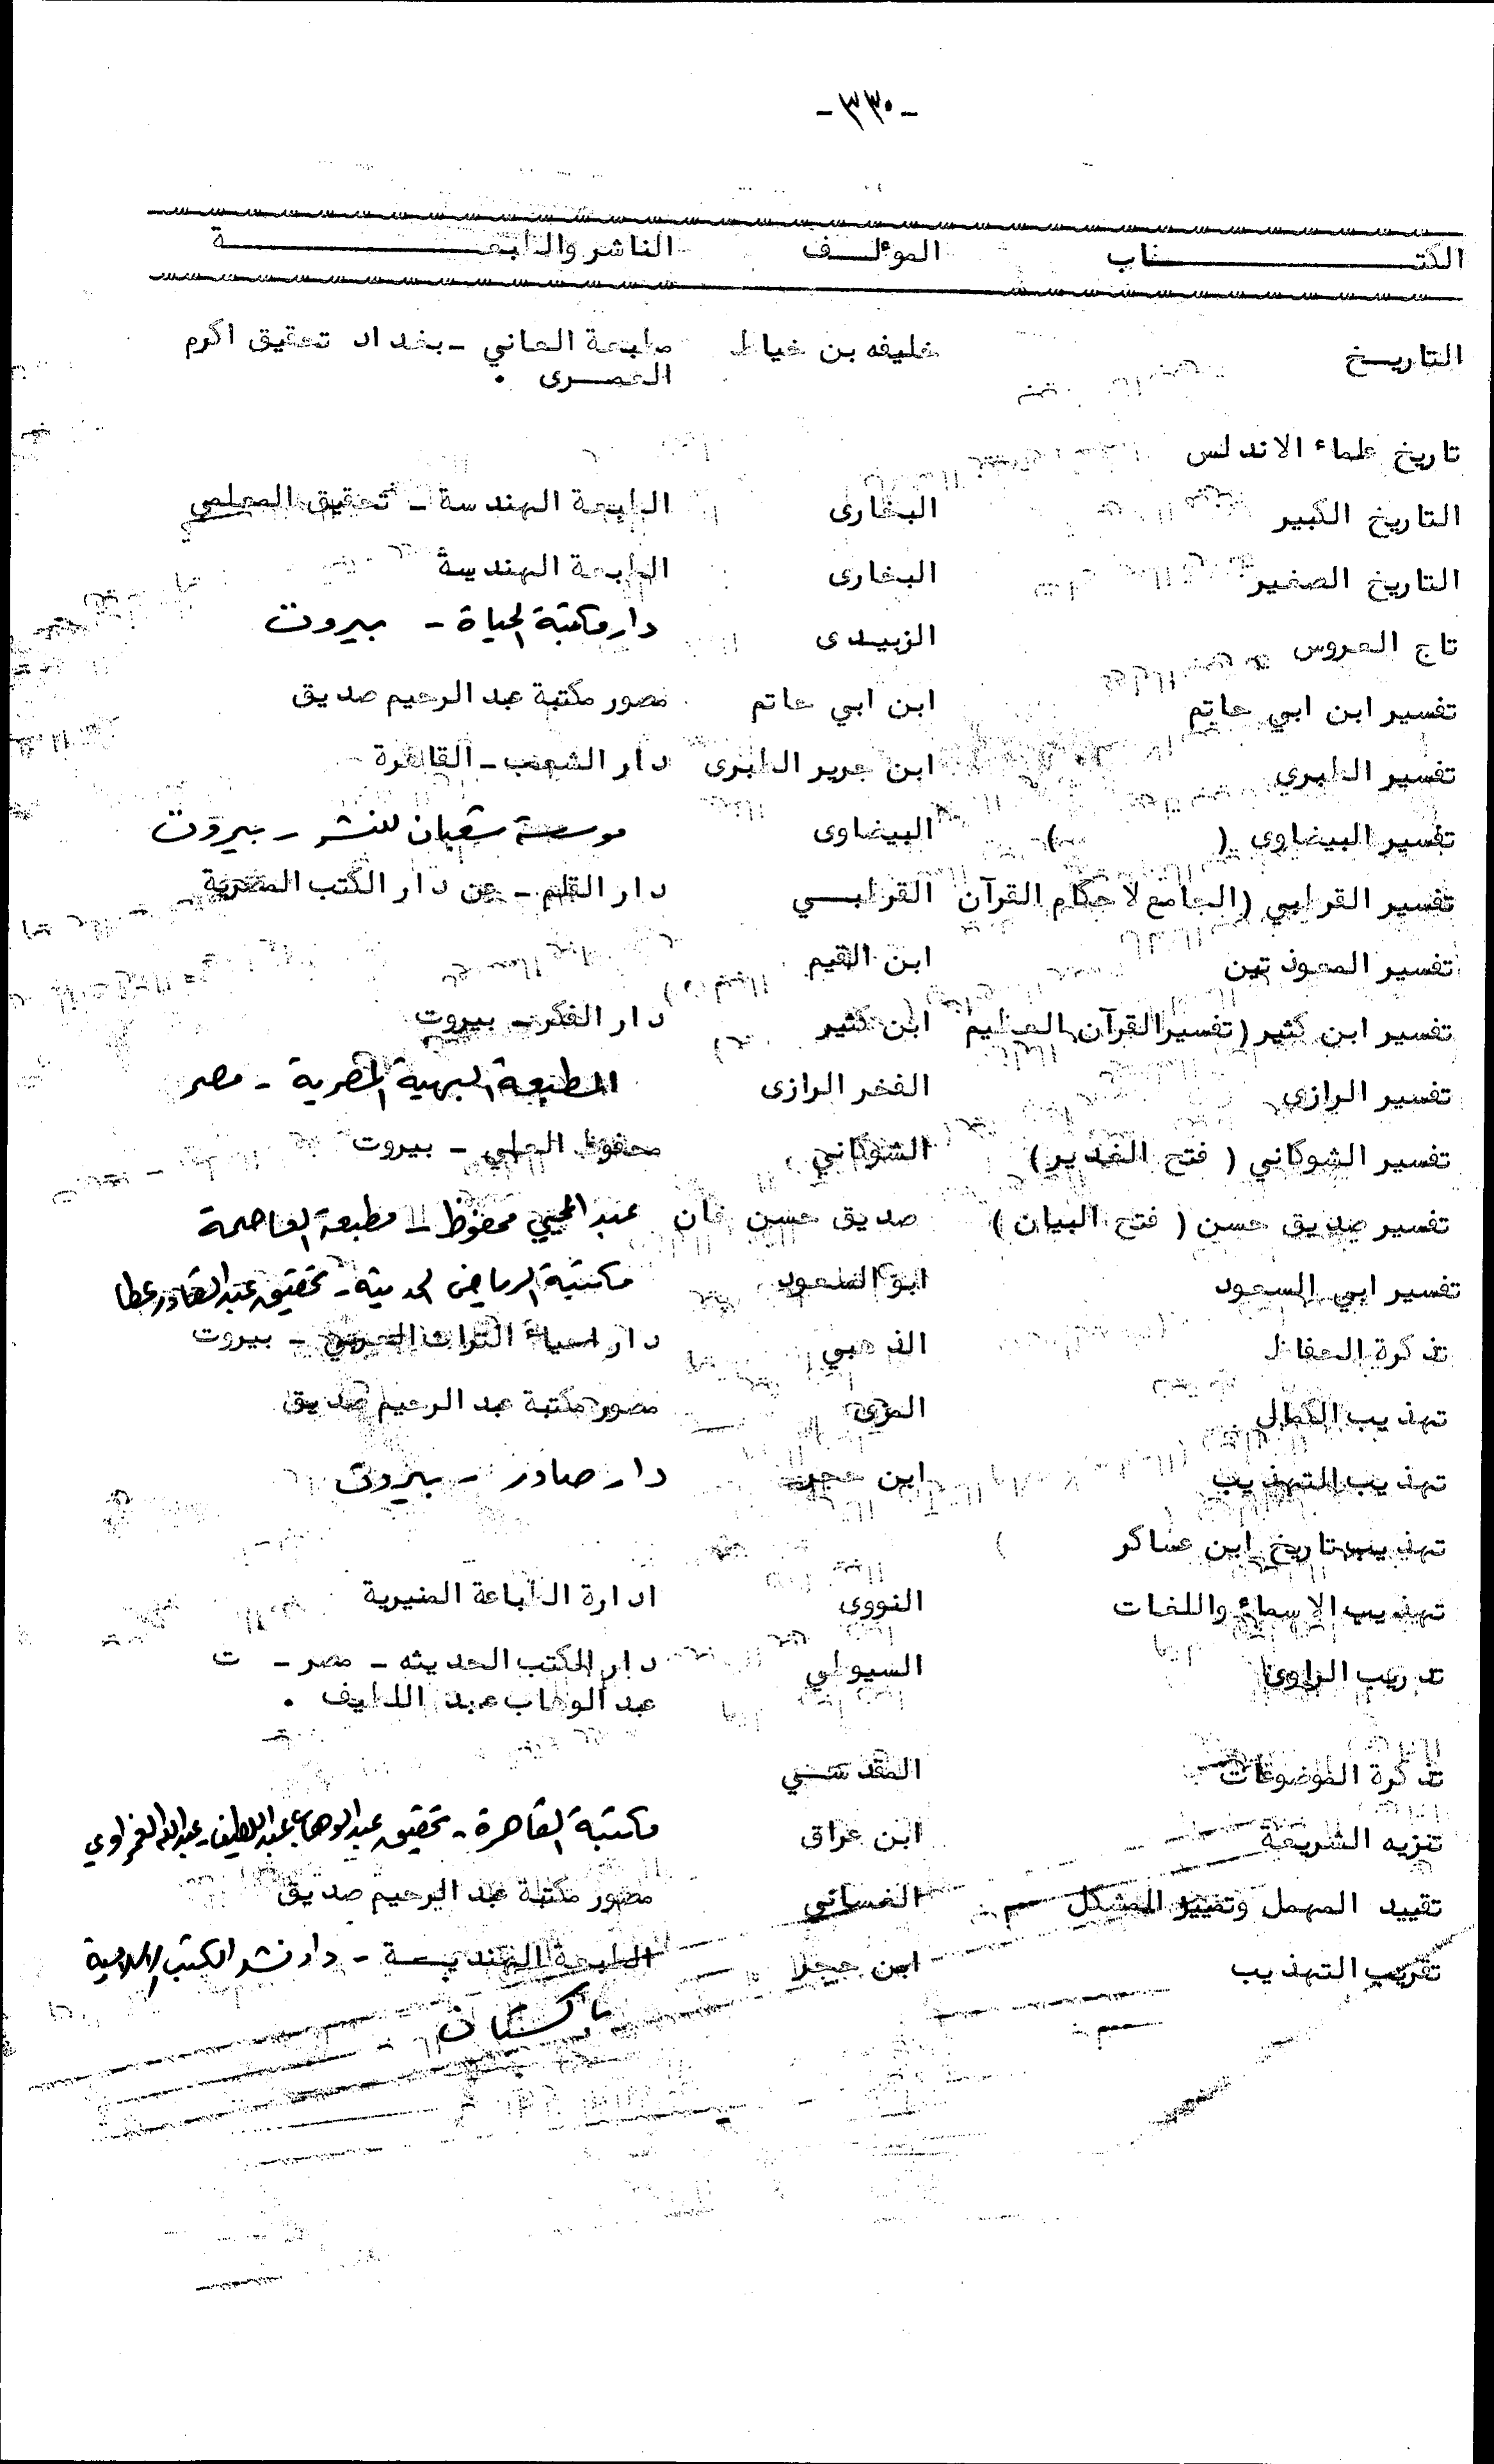 - ٣٣٠ -
الكتــــــاب المؤلــف الناشر والطبعــــــة
التاريــخ خليفه بن خياط مطبعة العاني - بغداد تحقيق اكرم
العمــرى .
تاريخ علماء الاندلس
التاريخ الكبير البخارى الطبعة الهندسة - تحقيق المعلمي
التاريخ الصغير البخارى الطبعة الهندسة
تاج العروس الزبيدى دار مكتبة الحياة - بيروت
تفسير ابن ابي حاتم ابن ابي حاتم مصور مكتبة عبد الرحيم صديق
تفسير الطبرى ابن جرير الطبرى دار الشعب - القاهرة
تفسير البيضاوى ( ) البيضاوى موسسة شعبان للنشر - بيروت
تفسير القرطبي (الجامع لاحكام القرآن القرطبــي دار القلم - عن دار الكتب المصرية
تفسير المعوذتين ابن القيم
تفسير ابن كثير (تفسير القرآن العظيم ابن كثير دار الفكر - بيروت
تفسير الرازى الفخر الرازى المطبعة البهية المصرية - مصر
تفسير الشوكاني ( فتح القدير) الشوكاني محفوظ العلي - بيروت
تفسير صديق حسن ( فتح البيان ) صديق حسن خان عبد المحيي محفوظ - مطبعة العاصمة
تفسير ابي السعود ابو السعود مكتبة الرياض الحديثة - تحقيق عبد القادر عطا
تذكرة الحفاظ الذهبي دار احياء التراث العربي - بيروت
تهذيب الكمال المزى مصور مكتبة عبد الرحيم صديق
تهذيب التهذيب ابن حجر دار صادر - بيروت
تهذيب تاريخ ابن عساكر
تهذيب الاسماء واللغات النووى ادارة الطباعة المنيرية
تدريب الراوى السيوطي دار الكتب الحديثه - مصر - ت
عبد الوهاب عبد اللطيف .
تذكرة الموضوعات المقدســي
تنزيه الشريعة ابن عراق مكتبة القاهرة - تحقيق عبد الوهاب عبد اللطيف - عبد الله الغمراوي
تقييد المهمل وتمييز المشكل الغساني مصور مكتبة عبد الرحيم صديق
تقريب التهذيب ابن حجر الطبعة الهنديــة - دار نشر الكتب الاسلامية
باكستان